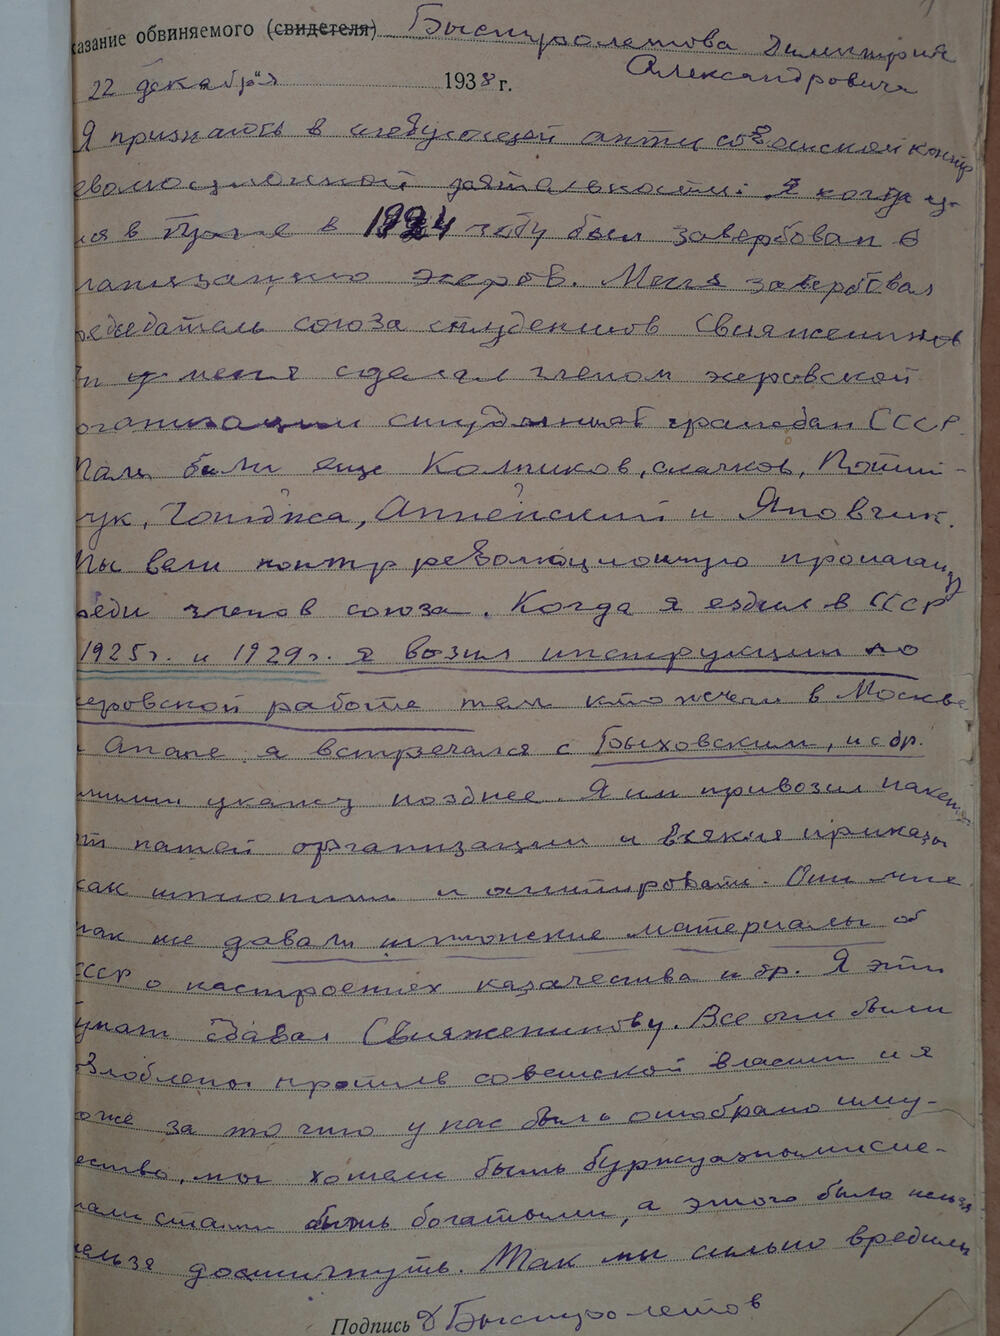 казание обвиняемого (свидетеля) Быстролетова Димитрия
Александровича
22 декабря 1938 г.
Я признаюсь в следующей анти советской контр
еволюционной деятельности: Я когда у-
ся в Праге в 1924 году был завербован в
ганизацию эсеров. Меня завербовал
редседатель союза студентов Свияженинов
н у меня сделал членом эсеровской
рганизации студентов граждан СССР.
Там были еще Колчиков, Скачков,
ук, и Яновчик.
Мы вели контрреволюционную пропаганду
реди членов союза. Когда я ездил в СССР
1925г. и 1929г. я возил инструкции по
серовской работе тем кто жили в Москве
и Анапе я встречался с Быховским, и с др.
укажу позднее. Я им привозил пакеты
от нашей организации и всякия приказы
как шпионить и агитировать. Они мне
так же давали шпионские материалы об
СССР о настроениях казачества и др. Я эти
умаги сдавал Свияженинову. Все они были
озлоблены против советской власти и я
оже за то что у нас было отобрано иму-
ество, мы хотели быть буржуазными спе-
стами быть богатыми, а этого было нельзя
нельзя достигнуть. Так мы сильно вредили
Подпись Д Быстролетов